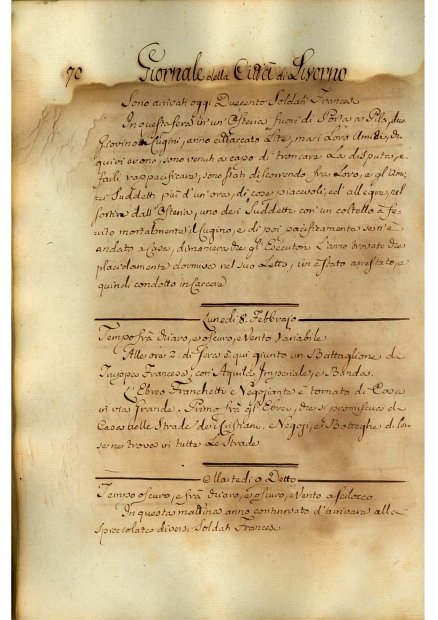 70 Giornale della Città di Livorno
Sono arivati oggi Duecento Soldati Francesi
In questa sera in un' Osteria fuori di Porta a Pisa, due
Giovinotti Cugini, anno attaccato Lite, ma i Loro Amici, di
quivi erono, sono venuti a capo di troncare La disputa, e
farli rappacificare, sono stati discorrendo frà Loro, e gl'Ami-
ci Suddetti più d'un'ora, di cose piacevoli, ed allegre, nel
sortire dall'Osteria, uno dei Suddetti con un coltello à fe-
rito mortalmente il Cugino, e di poi pacificamente sen'è
andato a Casa, dimodoche gl'Esecutori L'anno trovato che
placidamente dormiva nel suo Letto, un è stato arrestato, e
quindi condotto in Carcere
Lunedi 8. Febbrajo
Tempo frà chiaro, e oscuro, e Vento variabile
Alle ore 2. di Sera è qui giunto un Battaglione di
Truppa Francese con Aquila Imperiale, e Banda.
L'Ebreo Franchetti e Negoziante è tornato di Casa
in via Grande. Primo frà gl'Ebrei, che si promiscua di
Casa nelle Strade dei Cristiani. e Negozi, e Botteghe di loro
se ne trova in tutte Le Strade
Martedi 9 Detto
Tempo oscuro, e frà chiaro, e oscuro, e Vento a Scilocco.
In questa mattina anno continovato d'arrivare alla
spicciolata diversi Soldati Francesi